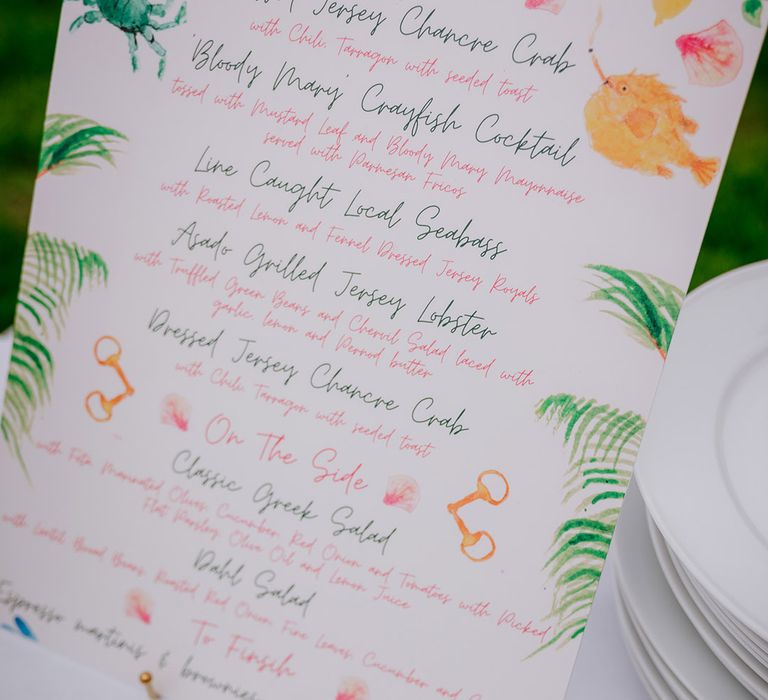 Jersey Chancre Crab
with Chili, Tarragon with seeded toast
'Bloody Mary' Crayfish Cocktail
tossed with Mustard Leaf and Bloody Mary Mayonnaise
served with Parmesan Fricos
Line Caught Local Seabass
with Roasted Lemon and Fennel Dressed Jersey Royals
Asado Grilled Jersey Lobster
with Truffled Green Beans and Chervil Salad laced with
garlic, lemon and Pernod butter
Dressed Jersey Chancre Crab
with Chili, Tarragon with seeded toast
On The Side
Classic Greek Salad
with Feta, Marinated Olives, Cucumber, Red Onion and Tomatoes with Picked
Flat Parsley, Olive Oil and Lemon Juice
Dahl Salad
with Lentil, Broad Beans, Roasted Red Onion, Fine Leaves, Cucumber and
To Finsih
Espresso martinis & brownies